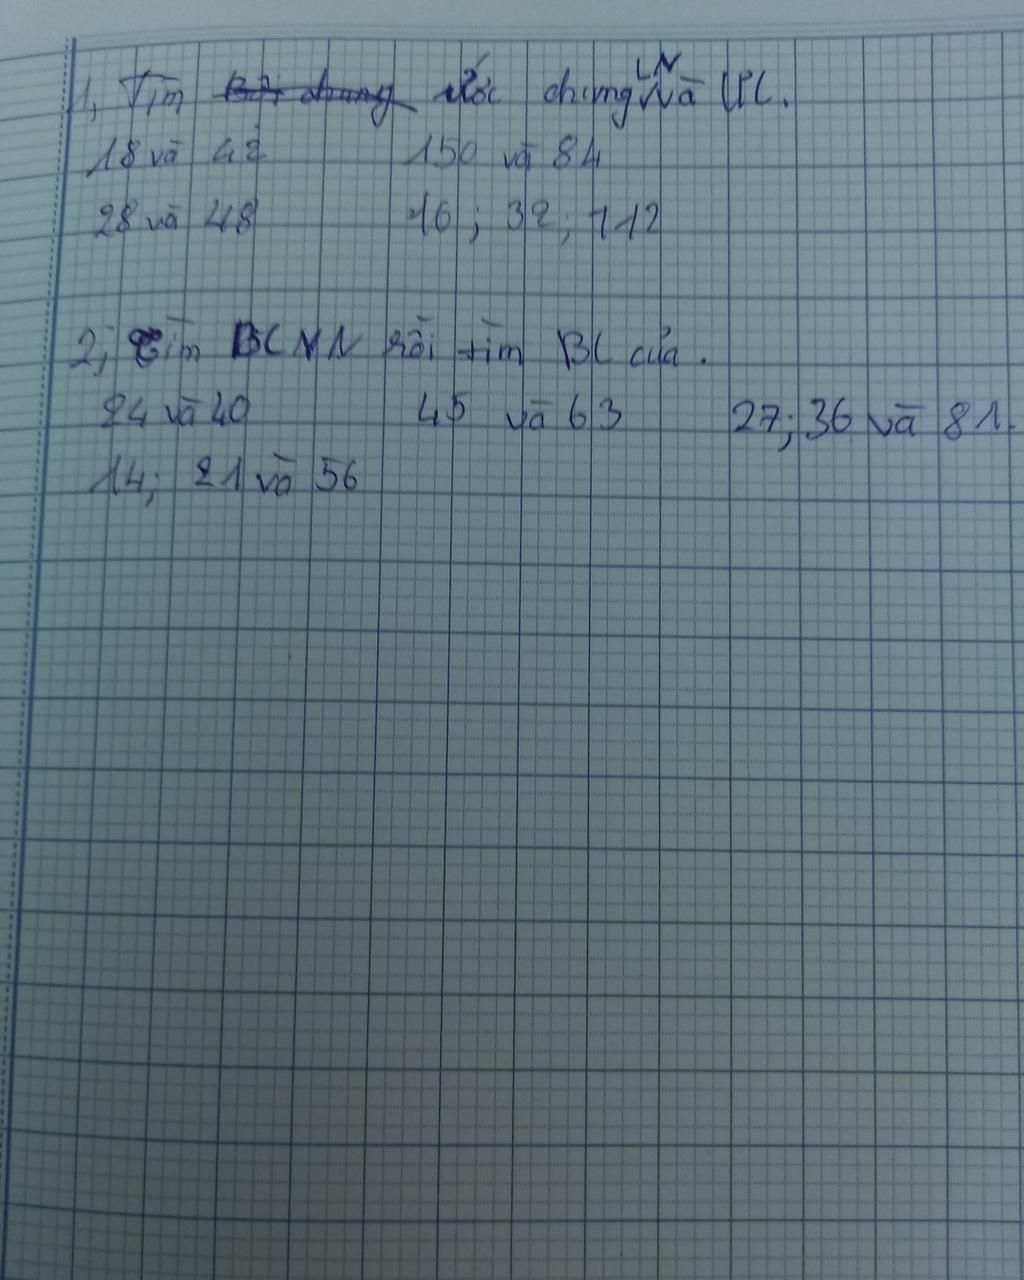 1, Tìm ước chung LN Và ƯC.
18 và 42 150 và 84
28 và 48 16 ; 32 ; 112
2, Tìm BCNN rồi tìm BC của .
24 và 40 45 và 63 27; 36 và 81.
14; 21 và 56